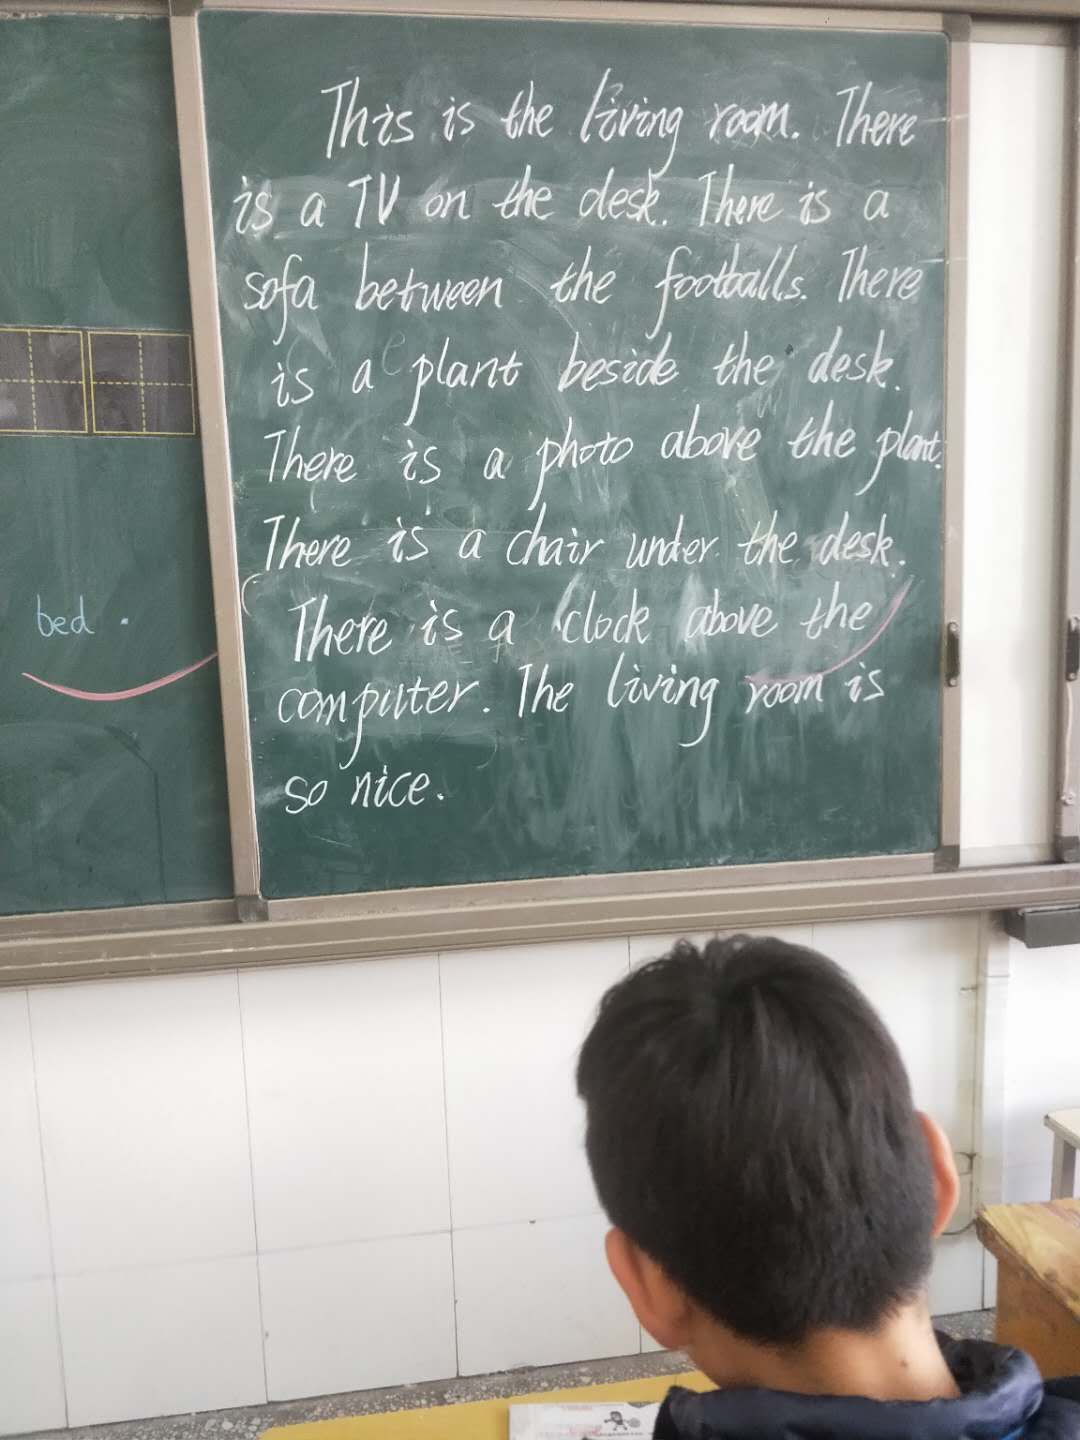 This is the living room. There
is a TV on the desk. There is a
sofa between the footballs. There
is a plant beside the desk.
There is a photo above the plant.
There is a chair under the desk.
There is a clock above the
computer. The living room is
so nice.
bed.